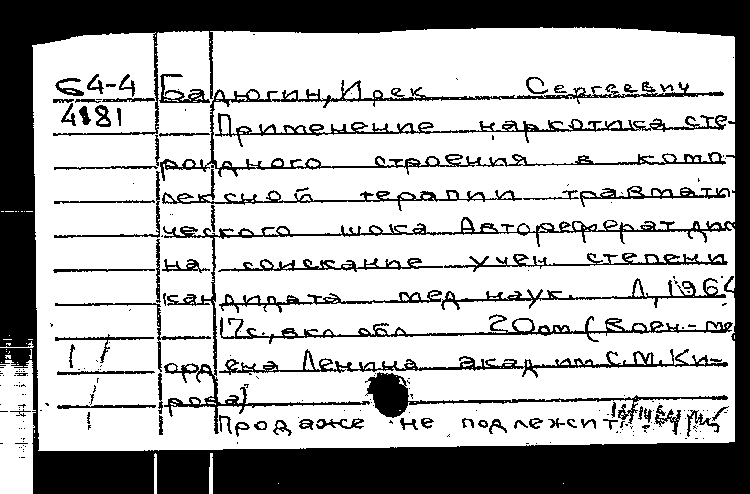 64-4 Бадюгин, Ирек Сергеевич
4181 Применение наркотика сте-
роидного строения в комп-
лексной терапии травмати-
ческого шока Автореферат дис
на соискание учен. степени
кандидата мед. наук. Л, 1964
17с., вкл. обл 20см (Воен.-ме
1 ордена Ленина акад им С.М. Ки-
рова)
Продаже не подлежит